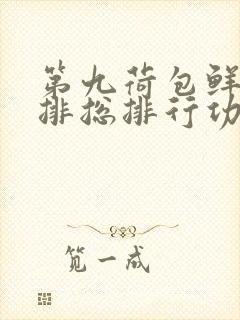 第九荷包鲜
排总排行功
笕一成